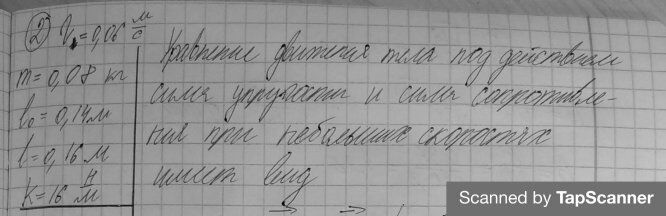 ② V₁=0,06 м/с
Уравнение движения тела под действием
m=0,08 кг
силы упругости и силы сопротивле-
l₀=0,14м
ния при небольших скоростях
l=0,16 м
имеет вид
k=16 Н/м
Scanned by TapScanner